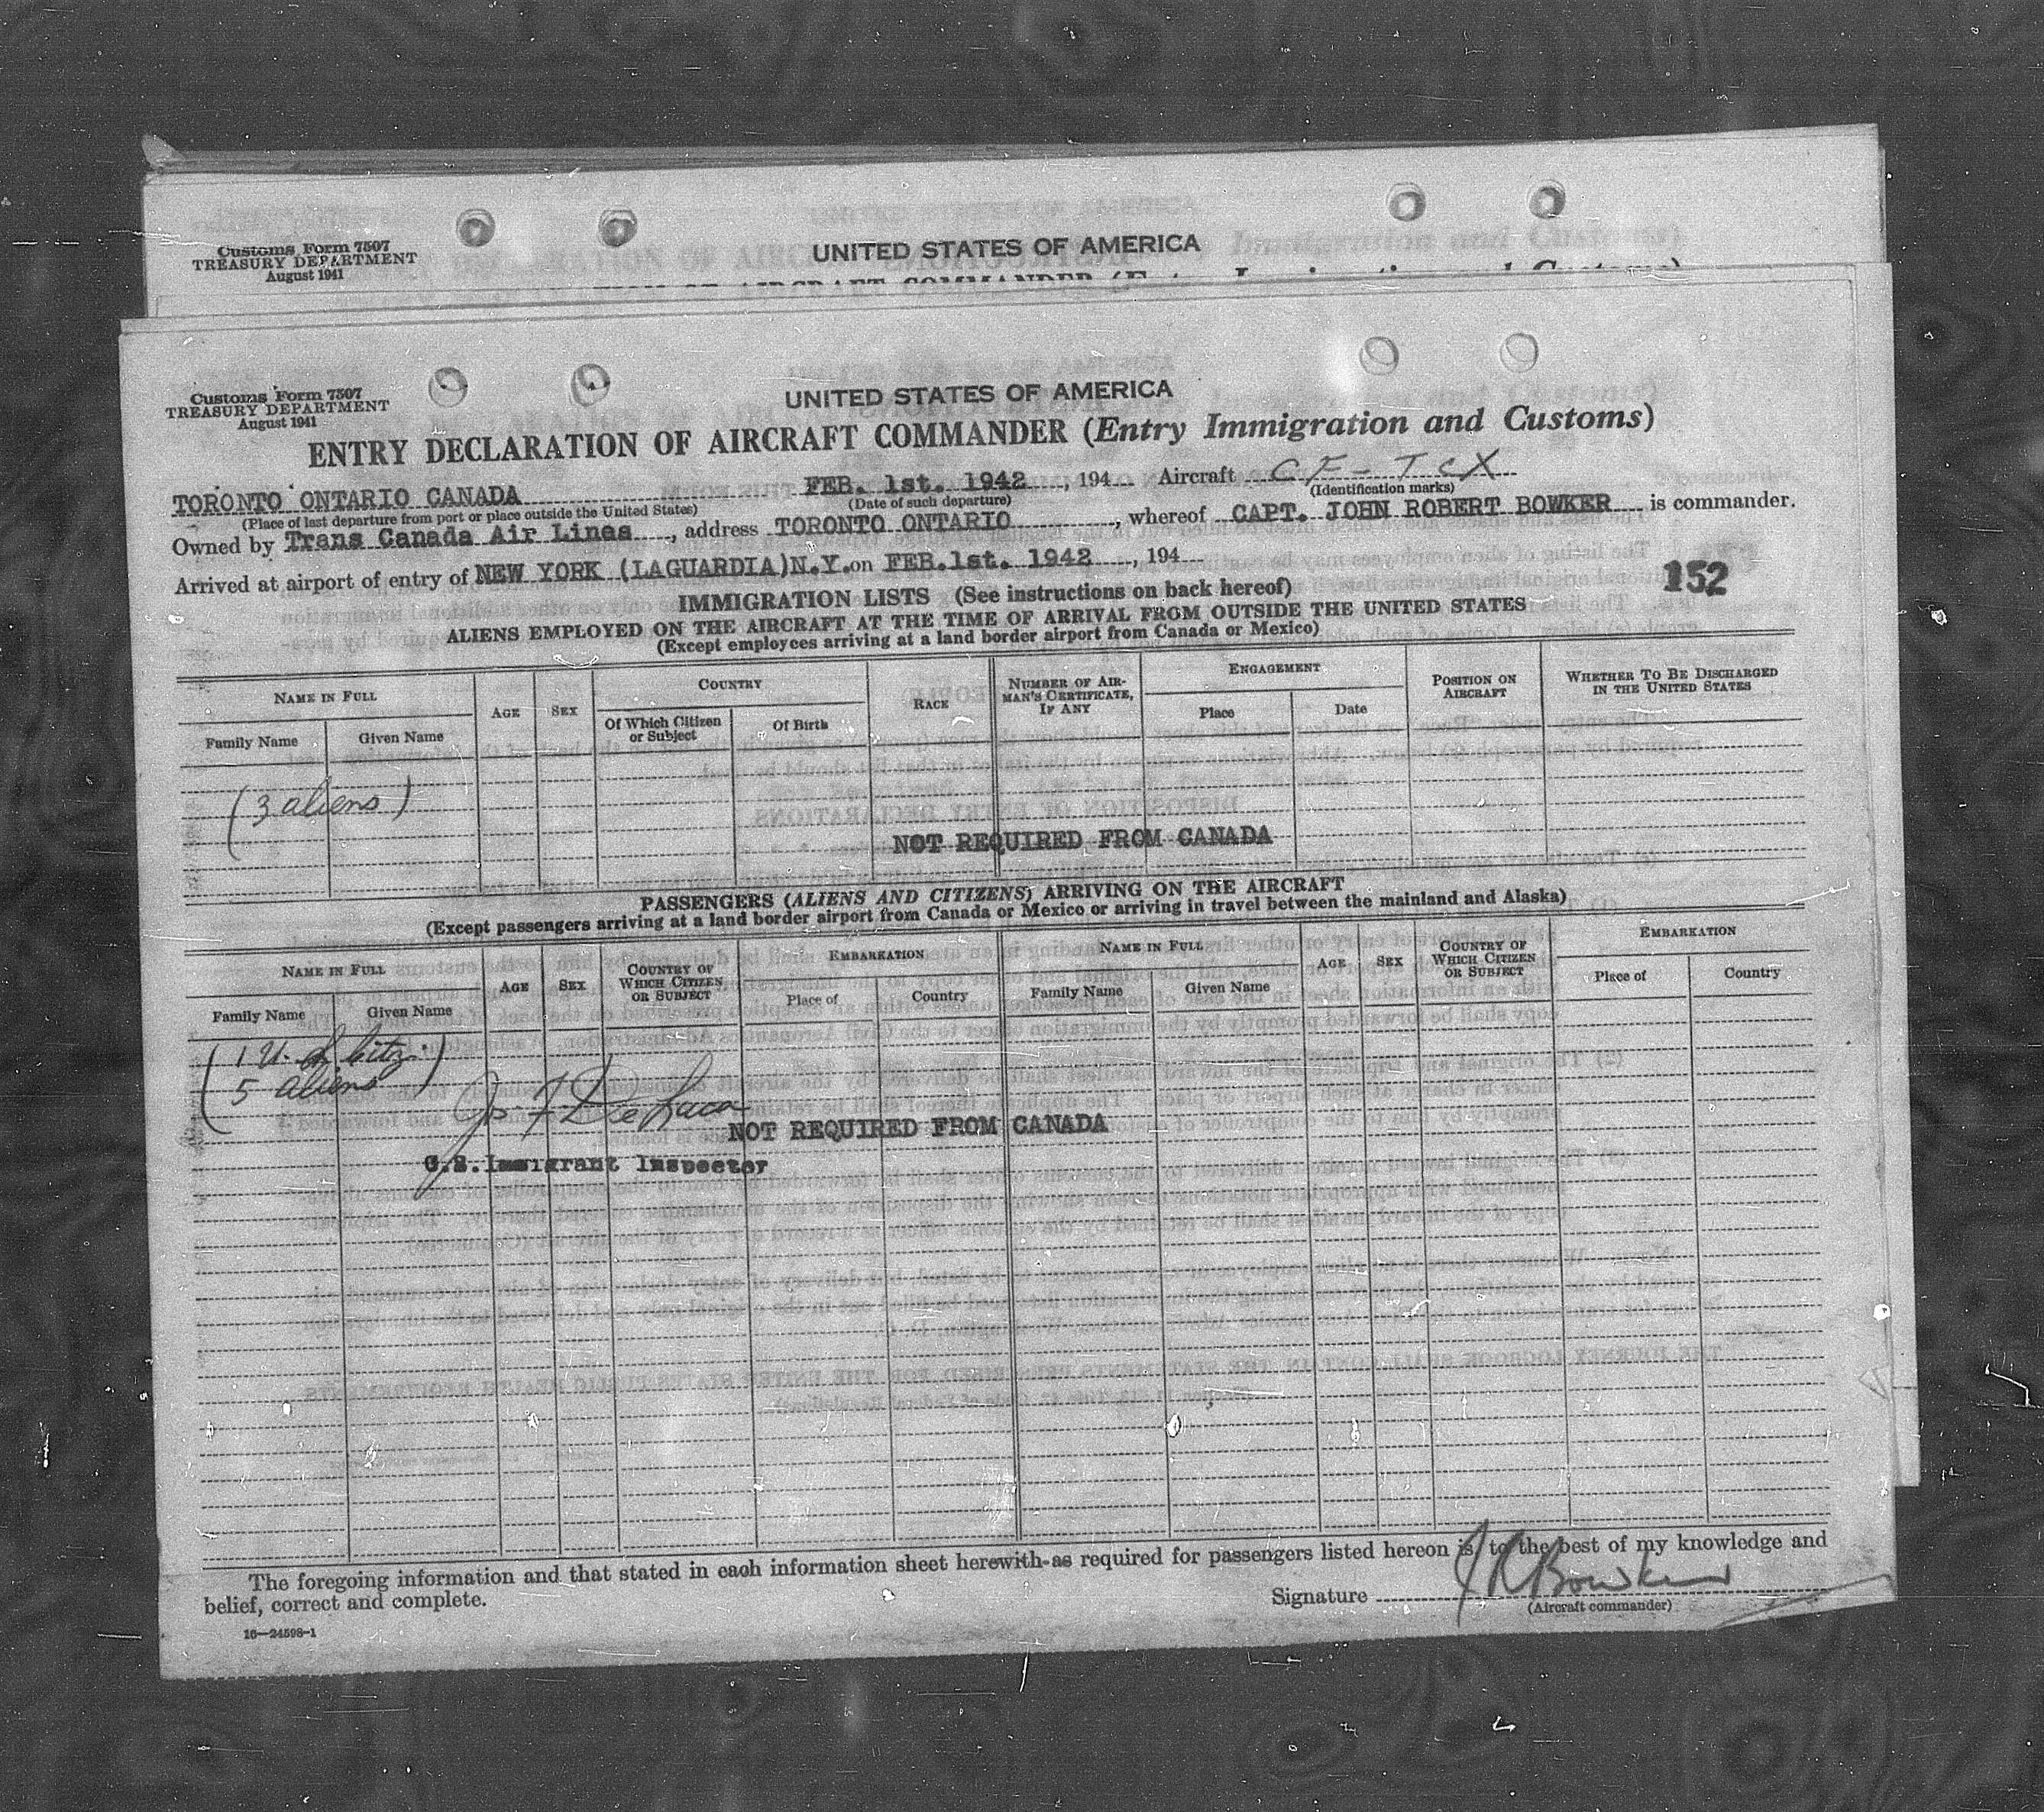 Customs Form 7507
TREASURY DEPARTMENT
August 1941
UNITED STATES OF AMERICA
Customs Form 7507
TREASURY DEPARTMENT
August 1941
UNITED STATES OF AMERICA
ENTRY DECLARATION OF AIRCRAFT COMMANDER (Entry Immigration and Customs)
TORONTO ONTARIO CANADA FEB. 1st. 1942, 194 Aircraft CF-TCX
(Place of last departure from port or place outside the United States) (Date of such departure) (Identification marks)
Owned by Trans Canada Air Lines, address TORONTO ONTARIO, whereof CAPT. JOHN ROBERT BOWKER is commander.
Arrived at airport of entry of NEW YORK (LAGUARDIA)N.Y. on FEB.1st. 1942, 194
152
IMMIGRATION LISTS (See instructions on back hereof)
ALIENS EMPLOYED ON THE AIRCRAFT AT THE TIME OF ARRIVAL FROM OUTSIDE THE UNITED STATES
(Except employees arriving at a land border airport from Canada or Mexico)
NAME IN FULL AGE SEX COUNTRY RACE NUMBER OF AIRMAN'S CERTIFICATE, IF ANY ENGAGEMENT POSITION ON AIRCRAFT WHETHER TO BE DISCHARGED IN THE UNITED STATES
Family Name Given Name Of Which Citizen or Subject Of Birth Place Date
(3 aliens)
NOT REQUIRED FROM CANADA
PASSENGERS (ALIENS AND CITIZENS) ARRIVING ON THE AIRCRAFT
(Except passengers arriving at a land border airport from Canada or Mexico or arriving in travel between the mainland and Alaska)
NAME IN FULL AGE SEX COUNTRY OF WHICH CITIZEN OR SUBJECT EMBARKATION NAME IN FULL AGE SEX COUNTRY OF WHICH CITIZEN OR SUBJECT EMBARKATION
Family Name Given Name Place of Country Family Name Given Name Place of Country
(1 U.S. Citz.
5 aliens)
NOT REQUIRED FROM CANADA
U.S. Immigrant Inspector
The foregoing information and that stated in each information sheet herewith as required for passengers listed hereon is, to the best of my knowledge and
belief, correct and complete.
Signature JR Bowker
(Aircraft commander)
16—24598-1